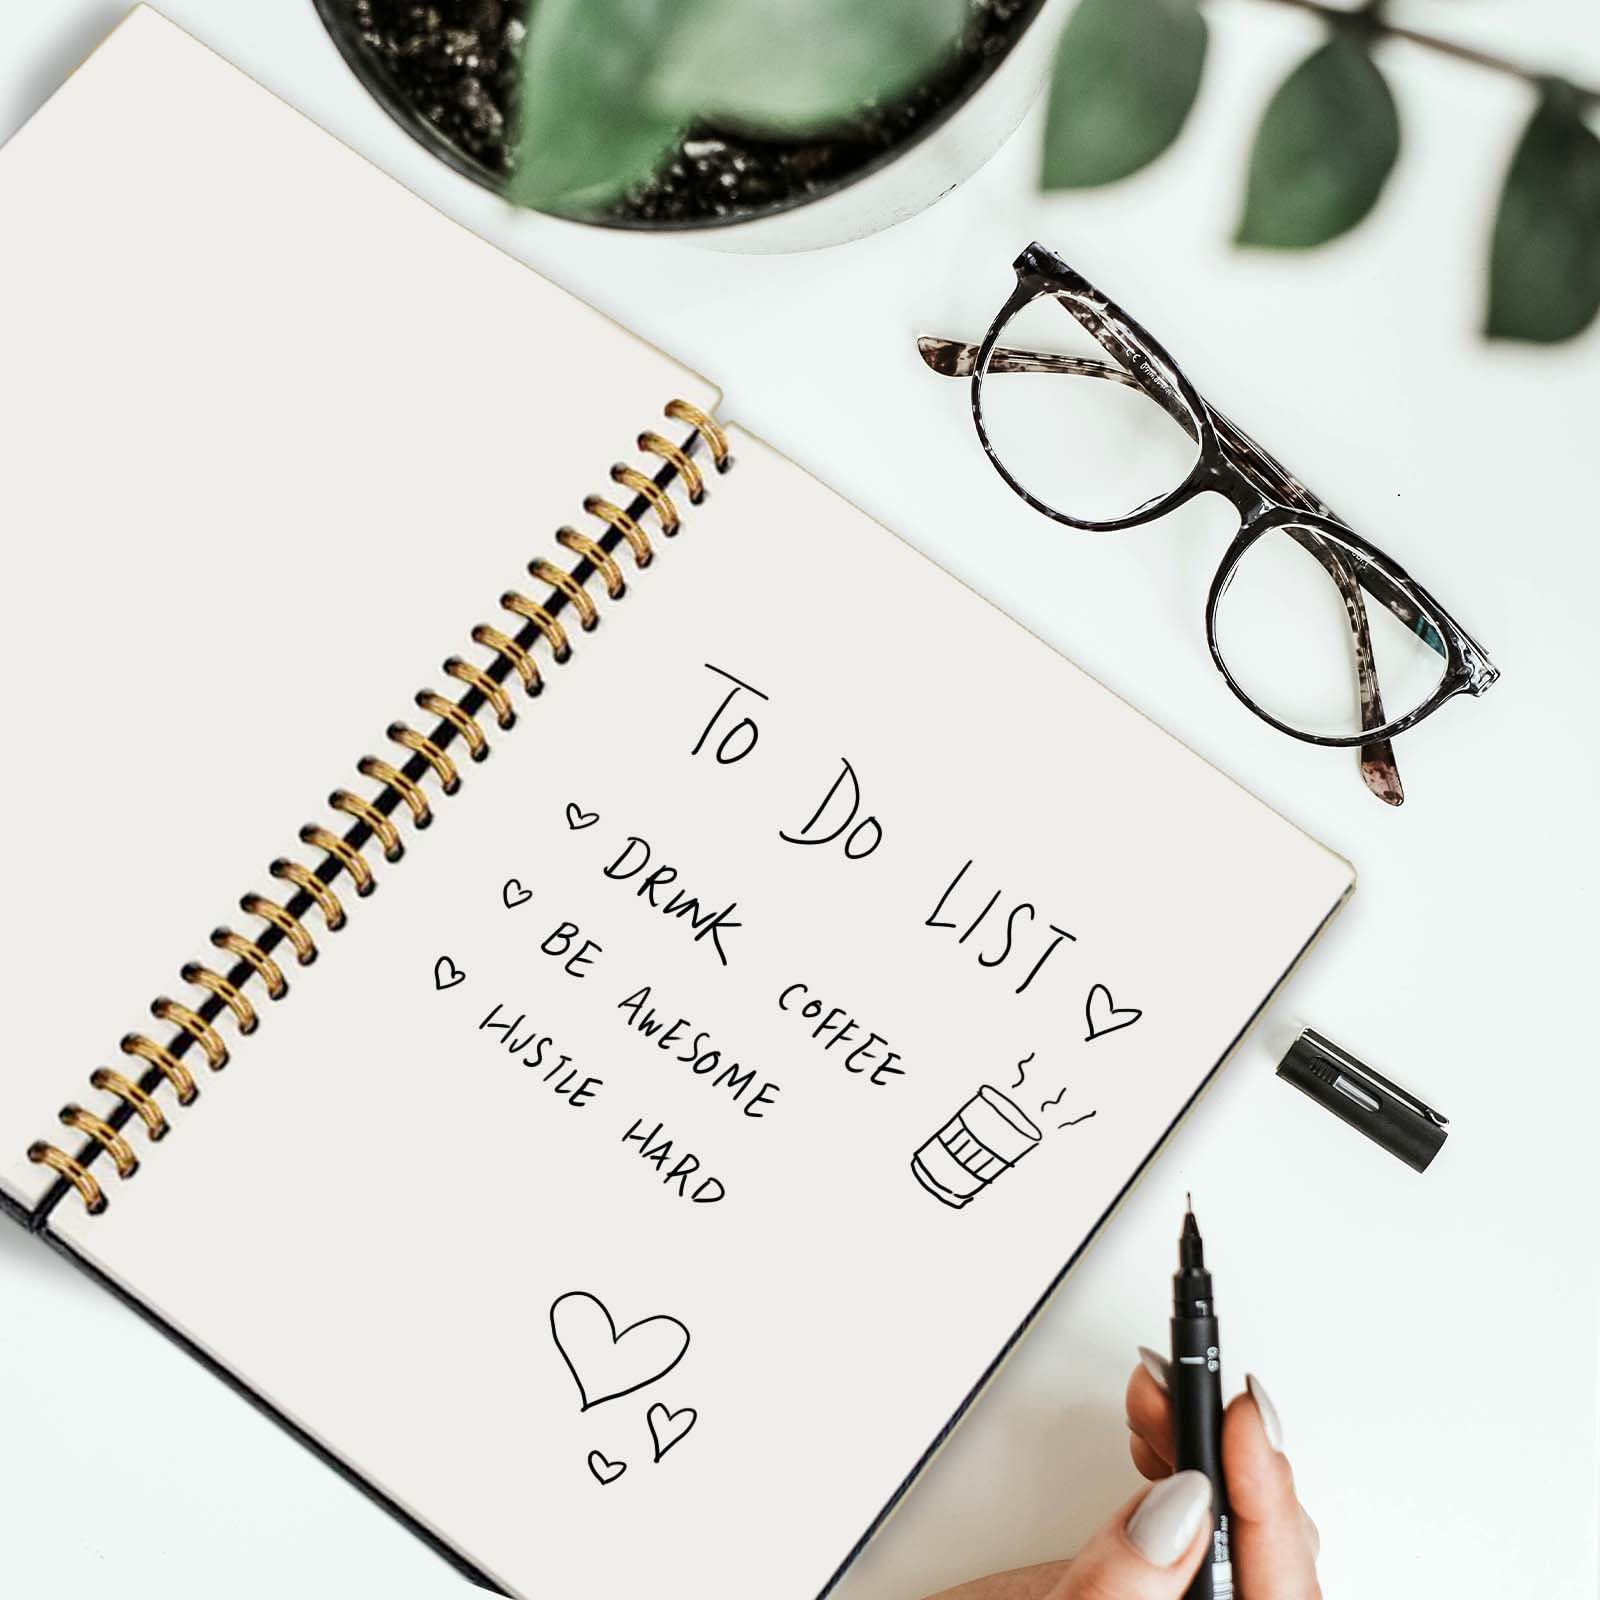 To Do LIST
DRINK COFFEE
BE AWESOME
HUSTLE HARD
0.5